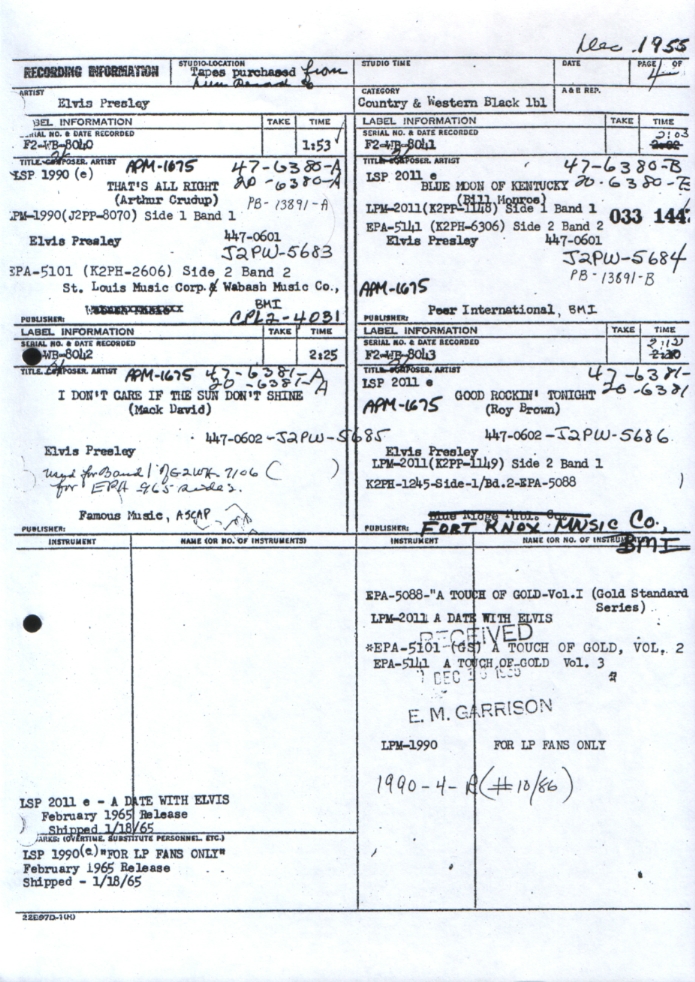 Dec. 1955
RECORDING INFORMATION
STUDIO-LOCATION
Tapes purchased from
STUDIO TIME
DATE
PAGE 4 OF
ARTIST
Elvis Presley
CATEGORY
Country & Western Black lbl
A & R REP.
BEL INFORMATION TAKE TIME
SERIAL NO. & DATE RECORDED
F2-WB-8040 1:53
TITLE, COMPOSER, ARTIST
APM-1675 47-6380-A
LSP 1990 (e) 20-6380-A
THAT'S ALL RIGHT
(Arthur Crudup) PB-13891-A
LPM-1990(J2PP-8070) Side 1 Band 1
Elvis Presley 447-0601
J2PW-5683
EPA-5101 (K2PH-2606) Side 2 Band 2
St. Louis Music Corp. & Wabash Music Co.,
BMI
PUBLISHER: CPL2-4031
LABEL INFORMATION TAKE TIME
SERIAL NO. & DATE RECORDED
F2-WB-8041 2:03
TITLE, COMPOSER, ARTIST
47-6380-B
LSP 2011 e
BLUE MOON OF KENTUCKY 20-6380-B
(Bill Monroe)
LPM-2011(K2PP-1148) Side 1 Band 1
033 144
EPA-5141 (K2PH-6306) Side 2 Band 2
Elvis Presley 447-0601
J2PW-5684
PB-13891-B
APM-1675
Peer International, BMI
PUBLISHER:
LABEL INFORMATION TAKE TIME
SERIAL NO. & DATE RECORDED
WB-8042 2:25
TITLE, COMPOSER, ARTIST
APM-1675 47-6381-A
20-6381-A
I DON'T CARE IF THE SUN DON'T SHINE
(Mack David)
447-0602-J2PW-5685
Elvis Presley
used for Band 1 of G2WH-7106 ( )
for EPA 965 sides.
Famous Music, ASCAP
PUBLISHER:
LABEL INFORMATION TAKE TIME
SERIAL NO. & DATE RECORDED
F2-WB-8043 2:12
2:20
TITLE, COMPOSER, ARTIST
47-6381-
LSP 2011 e 20-6381
APM-1675 GOOD ROCKIN' TONIGHT
(Roy Brown)
447-0602-J2PW-5686
Elvis Presley
LPM-2011(K2PP-1149) Side 2 Band 1
K2PH-1245-Side-1/Bd.2-EPA-5088
PUBLISHER: FORT KNOX MUSIC CO.,
BMI
INSTRUMENT NAME (OR NO. OF INSTRUMENTS) INSTRUMENT NAME (OR NO. OF INSTRUM
EPA-5088-"A TOUCH OF GOLD-Vol.I (Gold Standard
Series)
LPM-2011 A DATE WITH ELVIS
RECEIVED
*EPA-5101-(GS) A TOUCH OF GOLD, VOL, 2
EPA-5141 A TOUCH OF GOLD Vol. 3
DEC
E. M. GARRISON
LPM-1990 FOR LP FANS ONLY
1990-4-R(#10/86)
LSP 2011 e - A DATE WITH ELVIS
February 1965 Release
Shipped 1/18/65
ARKS: (OVERTIME, SUBSTITUTE PERSONNEL, ETC.)
LSP 1990(e)"FOR LP FANS ONLY"
February 1965 Release
Shipped - 1/18/65